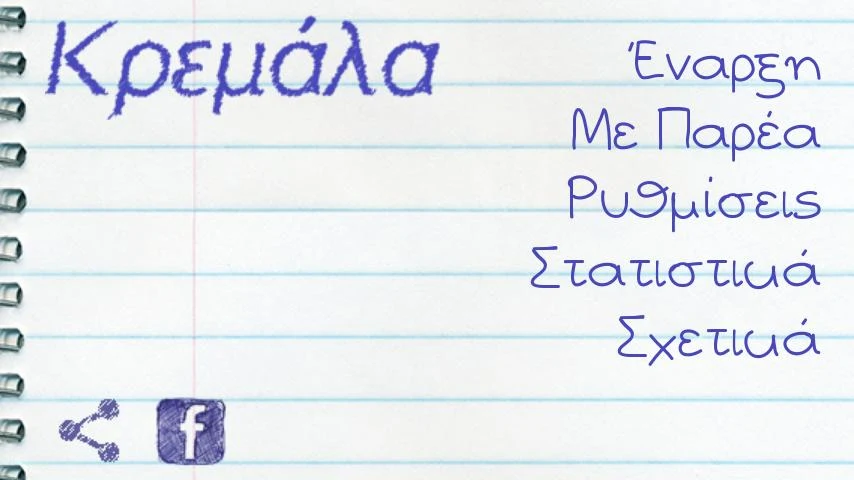 Κρεμάλα
Έναρξη
Με Παρέα
Ρυθμίσεις
Στατιστικά
Σχετικά
f